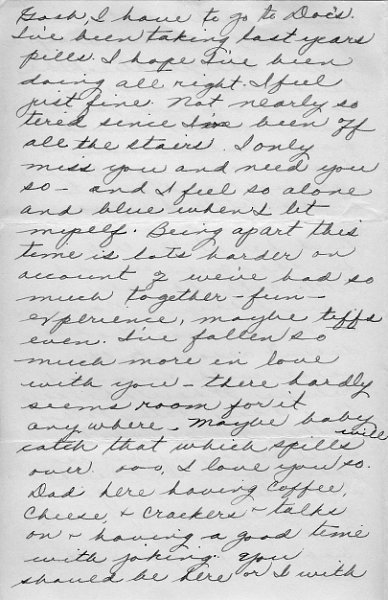 Gosh, I have to go to Doc's.
I've been taking last years
pills. I hope I've been
doing all right. I feel
just fine. Not nearly so
tered since I've been off
all the stairs. I only
miss you and need you
so - and I feel so alone
and blue when I let
myself. Being apart this
time is lots harder on
account of we've had so
much together - fun -
experience, maybe tiffs
even. I've fallen so
much more in love
with you - there hardly
seems room for it
any where - maybe baby
will
catch that which spills
over. ooo, I love you so.
Dad here having coffee,
cheese, + crackers - talks
on + having a good time
with joking. You
should be here or I with